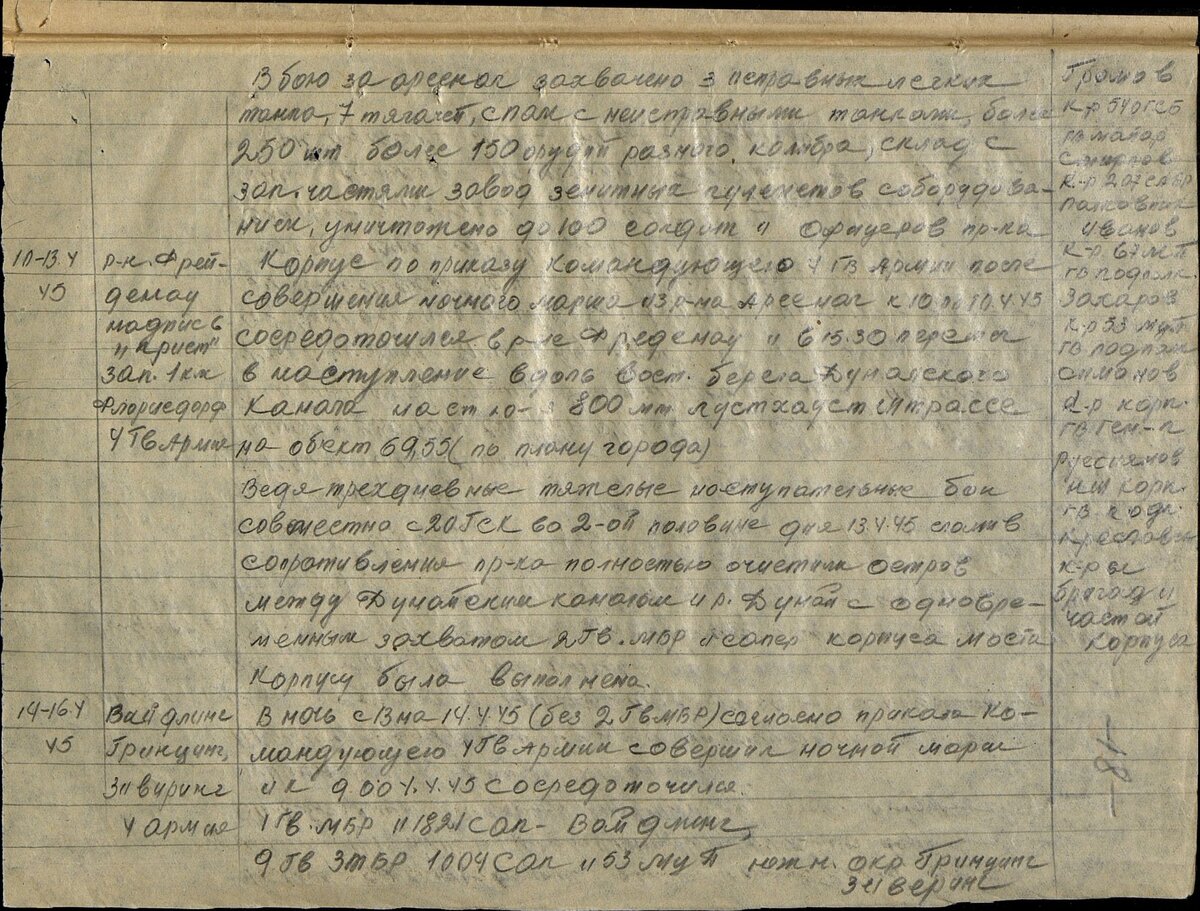 В бою за арсенал захвачено 3 исправных легких
танка, 7 тягачей, с неисправными танками, более
250 шт более 150 орудий разного калибра, склад с
зап. частями завод зенитных пулеметов с оборудова-
нием, уничтожено до 100 солдат и офицеров пр-ка
Громов
К-р 540 ГСБ
гв. майор
Смирнов
К-р 207 САБР
полковник
Иванов
К-р 67 МП
гв подполк
Захаров
К-р 53 МЦП
гв подполк
К-р корп.
гв ген-л
Руссиянов
НШ корп.
гв. подп.
К-ры
бригад и
частей
Корпуса
10-13.4
45
р-н. Фрей-
денау
надпись
"Крист"
зап. 1 км
Флорисдорф
4 Гв Армия
Корпус по приказу командующего 4 Гв Армии после
совершения ночного марша из р-на Арсенал к 10.00 10.4.45
сосредоточился в р-не Фреденау и в 15.30 перешел
в наступление вдоль вост. берега Дунайского
канала на ст 800 мт Лустхаустштрассе
на объект 69,55 (по плану города)
Ведя трехдневные тяжелые наступательные бои
совместно с 20 ГСК во 2-ой половине дня 13.4.45 сломив
сопротивления пр-ка полностью очистили остров
между Дунайским каналом и р. Дунай с одновре-
менным захватом 2 Гв. МБР и сапер корпуса моста
Корпусу была выполнена.
14-16.4
45
Вайдлинг
Гринцинг,
Зиверинг
4 Армия
В ночь с 13 на 14.4.45 (без 2 Гв МБР) согласно приказа Ко-
мандующего 4 Гв Армии совершил ночной марш
и к 9.00 4.45 сосредоточился.
1 Гв. МБР и 1821 САП - Вайдлинг,
9 Гв ЗТБР 1004 САП и 53 МЦП южн. окр Гринцинг
Зиверинг
-81-